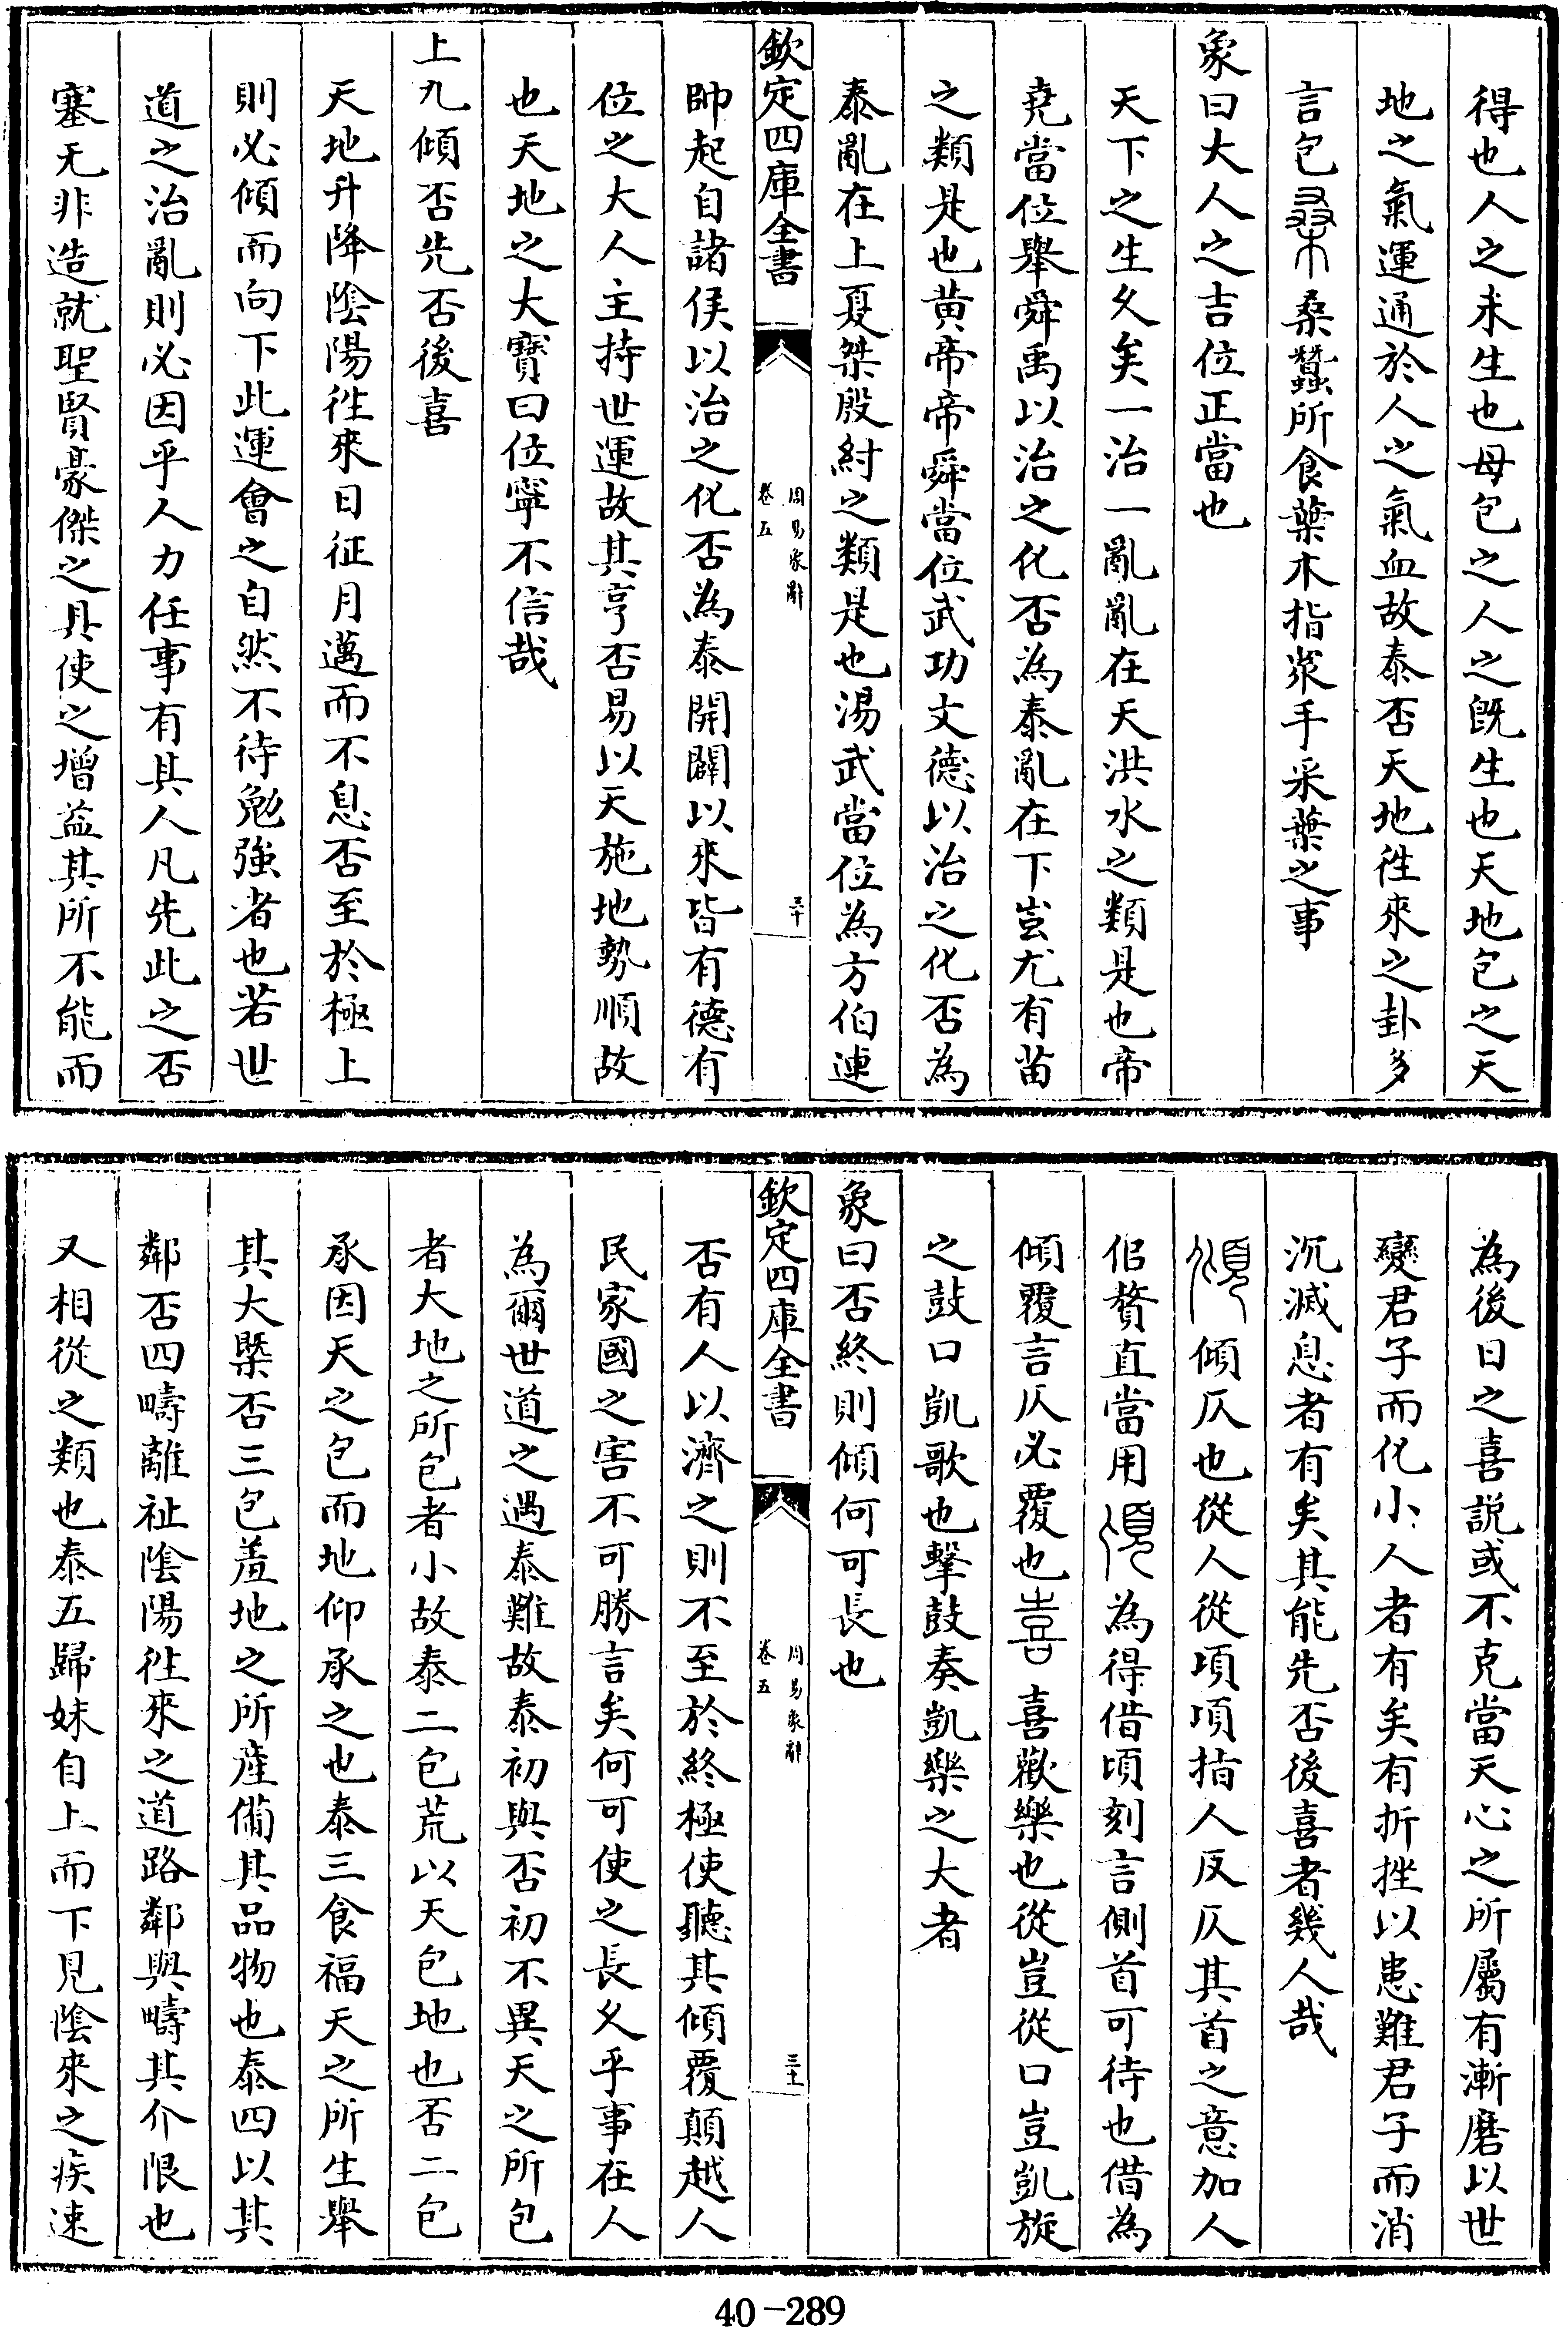 得也人之未生也母包之人之旣生也天地包之天
地之氣運通於人之氣血故泰否天地徃來之卦多
言包桑桑蠶所食葉木指㳄手采葉之事
象曰大人之吉位正當也
天下之生久矣一治一亂亂在天洪水之類是也帝
堯當位舉舜禹以治之化否為泰亂在下蚩尤有苗
之類是也黃帝帝舜當位武功文德以治之化否為
泰亂在上夏桀殷紂之類是也湯武當位為方伯連
欽定四庫全書
周易象辭
卷五
三十
帥起自諸侯以治之化否為泰開闢以來皆有德有
位之大人主持世運故其亨否易以天施地勢順故
也天地之大寶曰位寧不信哉
上九傾否先否後喜
天地升降陰陽徃來日征月邁而不息否至於極上
則必傾而向下此運會之自然不待勉強者也若世
道之治亂則必因乎人力任事有其人凡先此之否
塞无非造就聖賢豪傑之具使之增益其所不能而
為後日之喜説或不克當天心之所屬有漸磨以世
變君子而化小人者有矣有折挫以患難君子而消
沉滅息者有矣其能先否後喜者幾人哉
傾傾仄也從人從頃頃指人反仄其首之意加人
佀贅直當用頃為得借頃刻言側首可待也借為
傾覆言仄必覆也喜喜歡樂也從豈從口豈凱旋
之鼓口凱歌也擊鼓奏凱樂之大者
象曰否終則傾何可長也
欽定四庫全書
周易象辭
卷五
三十一
否有人以濟之則不至於終極使聽其傾覆顛越人
民家國之害不可勝言矣何可使之長久乎事在人
為爾世道之遇泰難故泰初與否初不異天之所包
者大地之所包者小故泰二包荒以天包地也否二包
承因天之包而地仰承之也泰三食福天之所生舉
其大槩否三包羞地之所產備其品物也泰四以其
鄰否四疇離祉陰陽徃來之道路鄰與疇其介限也
又相從之類也泰五歸妹自上而下見陰來之疾速
40-289